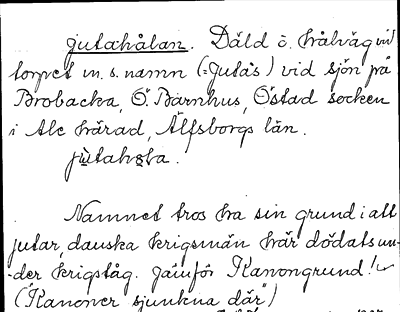 Jutahålan. Däld o. hålväg vid
torpet m. s. namn (=Jutås) vid sjön på
Brobacka, Ö. Barnhus, Östad socken
i Ale härad, Älfsborgs län.
Namnet tros ha sin grund i att
jutar, danska krigsmän här dödats un-
der krigståg. Jämför Kanongrund!
("Kanoner sjunkna där")